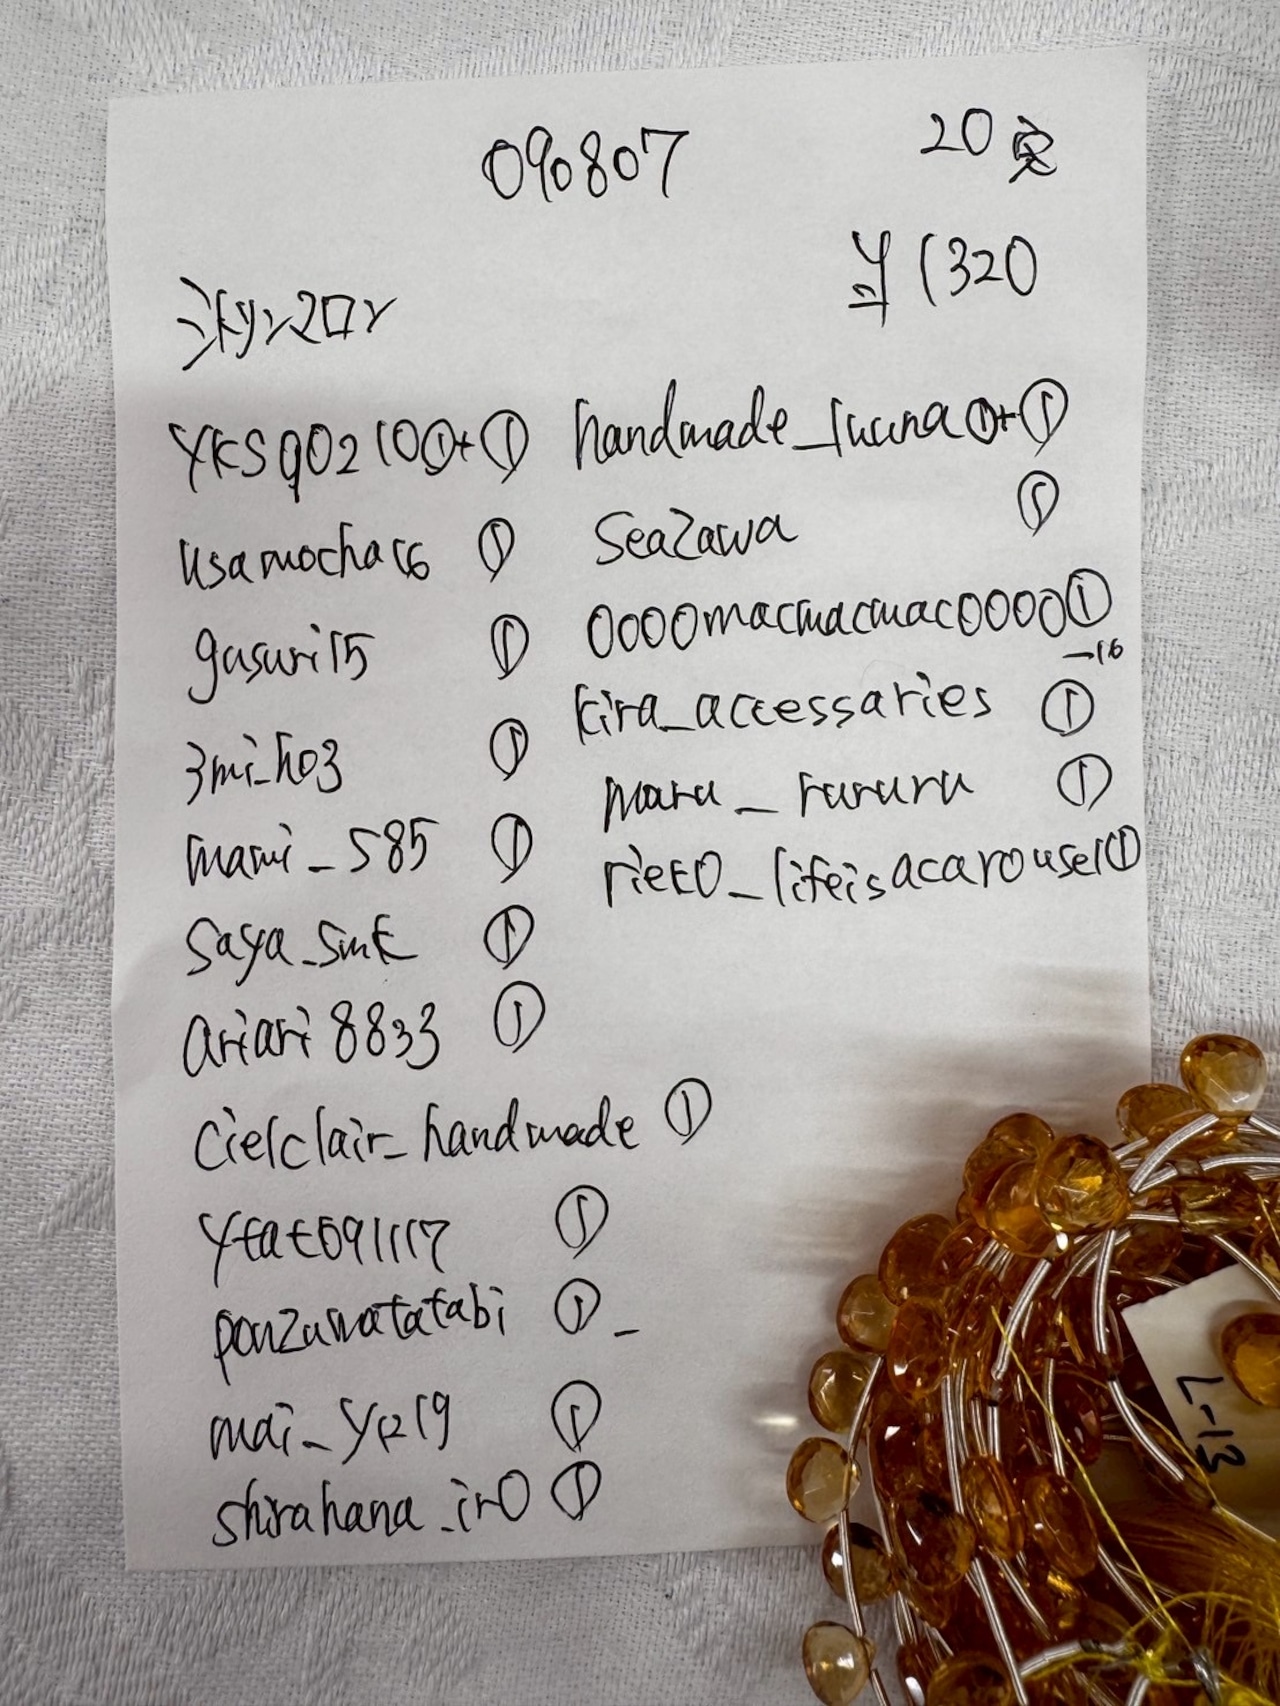 090807
20完
¥1320
YKS902100①+①
usamocha16 ①
gusuri15 ①
3mi_ho3 ①
mami_585 ①
saya_smk ①
ariari8833 ①
cielclair_handmade ①
ytat091117 ①
ponzuwatatabi ①_
mai_yk219 ①
shirahana_ir0 ①
handmade_luuna①+①
seazawa ①
0000macmacmac0000①
-16
kira_accessaries ①
maru_rururu ①
riek0_lifeisacarousel①
L-13